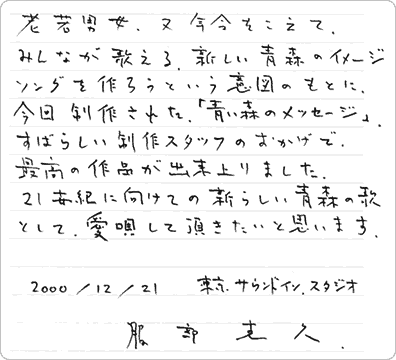 老若男女、又今今をこえて、
みんなが歌える、新しい青森のイメージ
ソングを作ろうという意図のもとに、
今回制作された、「青い森のメッセージ」、
すばらしい制作スタッフのおかげで、
最高の作品が出来上りました。
21世紀に向けての新らしい青森の歌
として、愛唄して頂きたいと思います。
2000/12/21 東京サウンドイン、スタジオ
服部克久